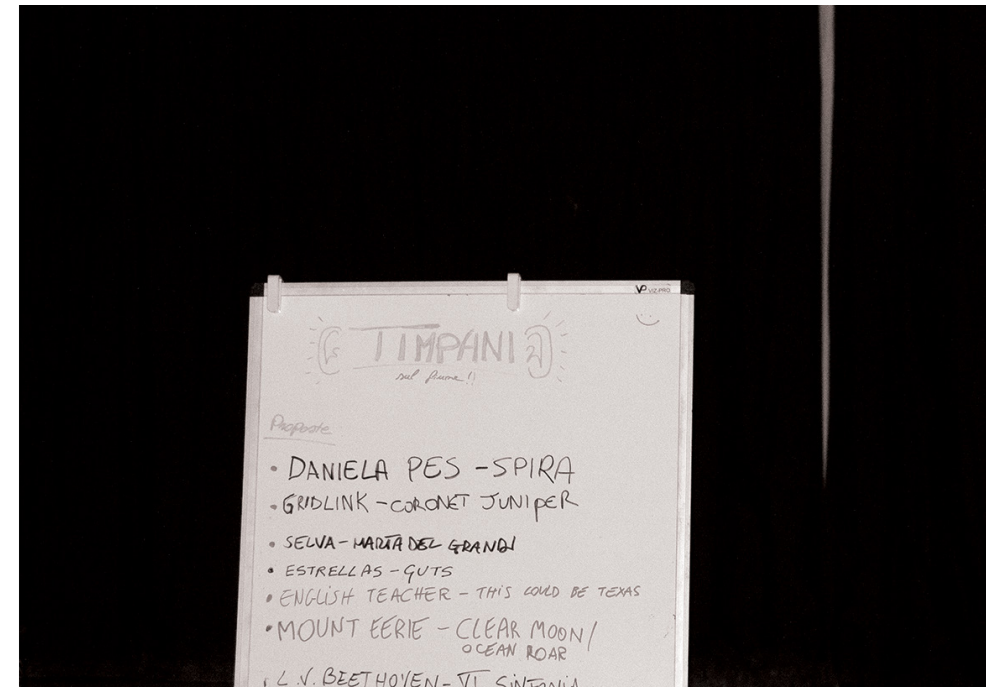 VP VIZ-PRO
TIMPANI
sul fiume!!
Proposte
• DANIELA PES - SPIRA
• GRIDLINK - CORONET JUNIPER
• SELVA - MARTA DEL GRANDI
• ESTRELLAS - GUTS
• ENGLISH TEACHER - THIS COULD BE TEXAS
• MOUNT EERIE - CLEAR MOON/
OCEAN ROAR
• L.V. BEETHOVEN - VI SINFONIA